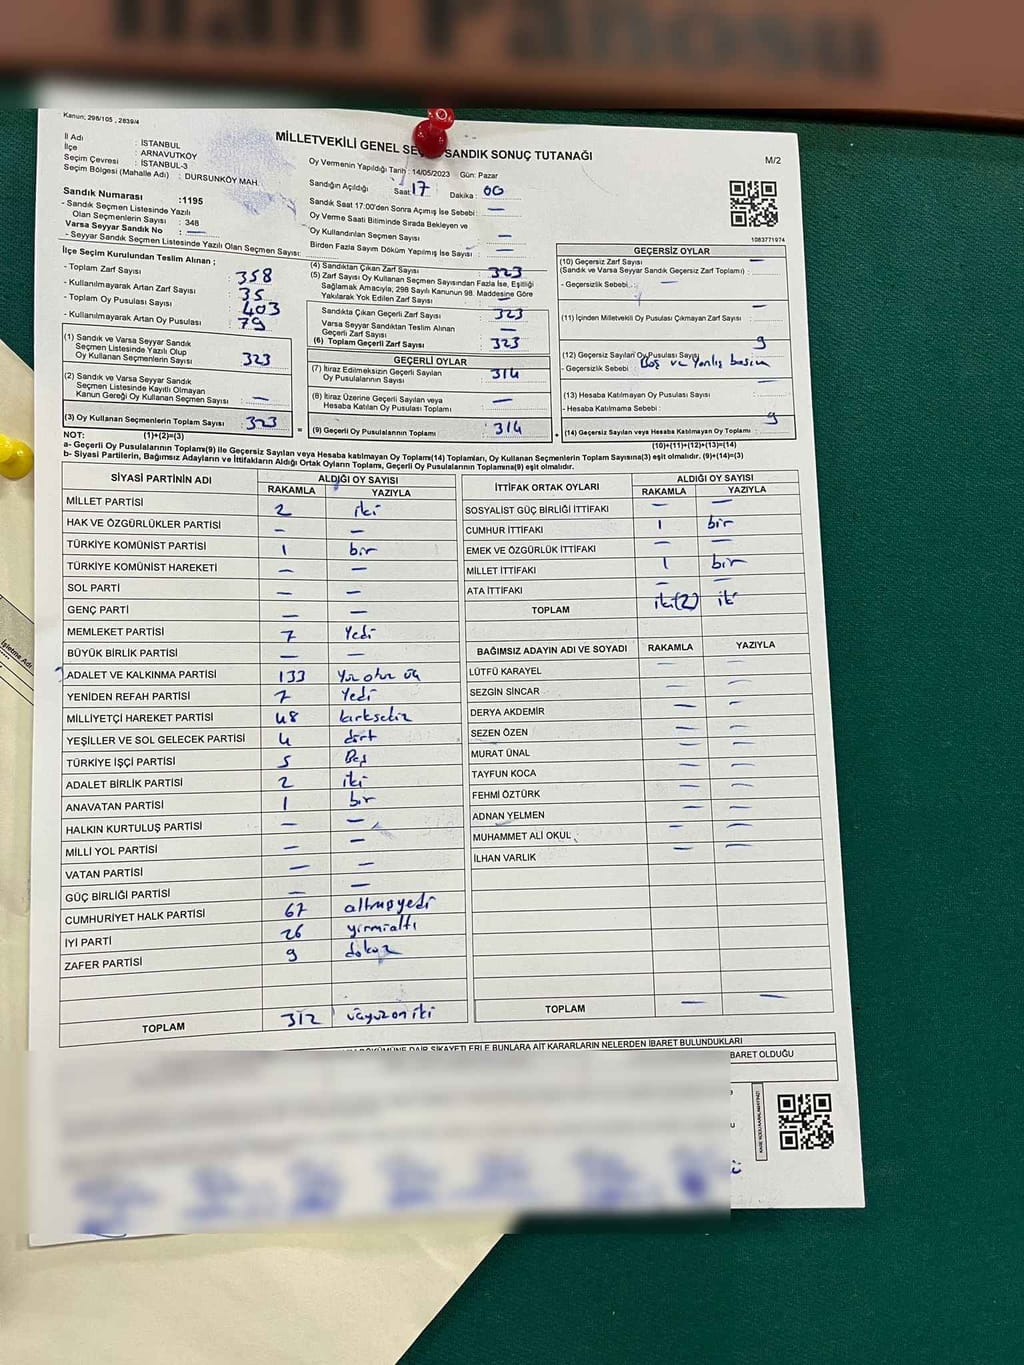 İlan Panosu
Kanun; 298/105 , 2839/4
MİLLETVEKİLİ GENEL SE SANDIK SONUÇ TUTANAĞI
M/2
İl Adı : İSTANBUL
İlçe : ARNAVUTKÖY
Seçim Çevresi : İSTANBUL-3
Seçim Bölgesi (Mahalle Adı) : DURSUNKÖY MAH.
Sandık Numarası :1195
- Sandık Seçmen Listesinde Yazılı
Olan Seçmenlerin Sayısı : 348
Varsa Seyyar Sandık No : —
- Seyyar Sandık Seçmen Listesinde Yazılı Olan Seçmen Sayısı:
Oy Vermenin Yapıldığı Tarih : 14/05/2023 Gün: Pazar
Sandığın Açıldığı Saat 17 Dakika : 00
Sandık Saat 17:00'den Sonra Açımış İse Sebebi : —
Oy Verme Saati Bitiminde Sırada Bekleyen ve
Oy Kullandırılan Seçmen Sayısı : —
Birden Fazla Sayım Döküm Yapılmış İse Sayısı : —
1083771974
İlçe Seçim Kurulundan Teslim Alınan ;
- Toplam Zarf Sayısı : 358
- Kullanılmayarak Artan Zarf Sayısı : 35
- Toplam Oy Pusulası Sayısı : 403
- Kullanılmayarak Artan Oy Pusulası : 79
(1) Sandık ve Varsa Seyyar Sandık
Seçmen Listesinde Yazılı Olup
Oy Kullanan Seçmenlerin Sayısı : 323
(2) Sandık ve Varsa Seyyar Sandık
Seçmen Listesinde Kayıtlı Olmayan
Kanun Gereği Oy Kullanan Seçmen Sayısı : —
(3) Oy Kullanan Seçmenlerin Toplam Sayısı : 323
(1)+(2)=(3)
(4) Sandıktan Çıkan Zarf Sayısı : 323
(5) Zarf Sayısı Oy Kullanan Seçmen Sayısından Fazla İse, Eşitliği
Sağlamak Amacıyla; 298 Sayılı Kanunun 98. Maddesine Göre
Yakılarak Yok Edilen Zarf Sayısı : —
Sandıkta Çıkan Geçerli Zarf Sayısı : 323
Varsa Seyyar Sandıktan Teslim Alınan
Geçerli Zarf Sayısı : —
(6) Toplam Geçerli Zarf Sayısı : 323
GEÇERLİ OYLAR
(7) İtiraz Edilmeksizin Geçerli Sayılan
Oy Pusulasının Sayısı : 314
(8) İtiraz Üzerine Geçerli Sayılan veya
Hesaba Katılan Oy Pusulası Toplamı : —
= (9) Geçerli Oy Pusulalarının Toplamı : 314 +
GEÇERSİZ OYLAR
(10) Geçersiz Zarf Sayısı
(Sandık ve Varsa Seyyar Sandık Geçersiz Zarf Toplamı) : —
- Geçersizlik Sebebi : —
(11) İçinden Milletvekili Oy Pusulası Çıkmayan Zarf Sayısı : —
(12) Geçersiz Sayılan Oy Pusulası Sayısı : 9
- Geçersizlik Sebebi : Boş ve Yanlış basım
(13) Hesaba Katılmayan Oy Pusulası Sayısı : —
- Hesaba Katılmama Sebebi :
(14) Geçersiz Sayılan veya Hesaba Katılmayan Oy Toplamı : 9
(10)+(11)+(12)+(13)=(14)
NOT:
a- Geçerli Oy Pusulalarının Toplamı(9) ile Geçersiz Sayılan veya Hesaba katılmayan Oy Toplam(14) Toplamları, Oy Kullanan Seçmenlerin Toplam Sayısına(3) eşit olmalıdır. (9)+(14)=(3)
b- Siyasi Partilerin, Bağımsız Adayların ve İttifakların Aldığı Ortak Oyların Toplamı, Geçerli Oy Pusulalarının Toplamına(9) eşit olmalıdır.
SİYASİ PARTİNİN ADI ALDIĞI OY SAYISI
RAKAMLA YAZIYLA
MİLLET PARTİSİ 2 iki
HAK VE ÖZGÜRLÜKLER PARTİSİ — —
TÜRKİYE KOMÜNİST PARTİSİ 1 bir
TÜRKİYE KOMÜNİST HAREKETİ — —
SOL PARTİ — —
GENÇ PARTİ — —
MEMLEKET PARTİSİ 7 Yedi
BÜYÜK BİRLİK PARTİSİ — —
ADALET VE KALKINMA PARTİSİ 133 Yüz otuz üç
YENİDEN REFAH PARTİSİ 7 Yedi
MİLLİYETÇİ HAREKET PARTİSİ 48 kırksekiz
YEŞİLLER VE SOL GELECEK PARTİSİ 4 dört
TÜRKİYE İŞÇİ PARTİSİ 5 Beş
ADALET BİRLİK PARTİSİ 2 iki
ANAVATAN PARTİSİ 1 bir
HALKIN KURTULUŞ PARTİSİ — —
MİLLİ YOL PARTİSİ — —
VATAN PARTİSİ — —
GÜÇ BİRLİĞİ PARTİSİ — —
CUMHURİYET HALK PARTİSİ 67 altmışyedi
İYİ PARTİ 26 yirmialtı
ZAFER PARTİSİ 9 dokuz
TOPLAM 312 üçyüzoniki
İTTİFAK ORTAK OYLARI ALDIĞI OY SAYISI
RAKAMLA YAZIYLA
SOSYALİST GÜÇ BİRLİĞİ İTTİFAKI — —
CUMHUR İTTİFAKI 1 bir
EMEK VE ÖZGÜRLÜK İTTİFAKI — —
MİLLET İTTİFAKI 1 bir
ATA İTTİFAKI — —
TOPLAM iki(2) iki
BAĞIMSIZ ADAYIN ADI VE SOYADI RAKAMLA YAZIYLA
LÜTFÜ KARAYEL — —
SEZGİN SİNCAR — —
DERYA AKDEMİR — —
SEZEN ÖZEN — —
MURAT ÜNAL — —
TAYFUN KOCA — —
FEHMİ ÖZTÜRK — —
ADNAN YELMEN — —
MUHAMMET ALİ OKUL — —
İLHAN VARLIK — —
TOPLAM — —
DÖKÜMÜNE DAİR ŞİKAYETLERLE BUNLARA AİT KARARLARIN NELERDEN İBARET BULUNDUKLARI
BARET OLDUĞU
İşletme Adı